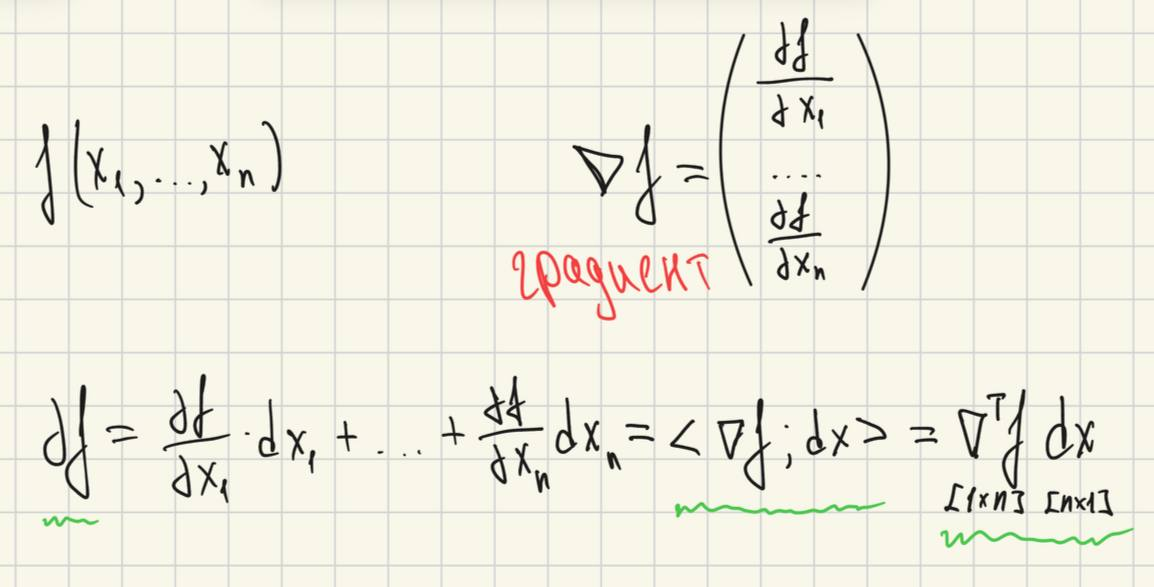 f(x₁,...,xₙ)
∇f = (∂f/∂x₁ .... ∂f/∂xₙ)
градиент
df = ∂f/∂x₁ · dx₁ + ... + ∂f/∂xₙ dxₙ = < ∇f ; dx > = ∇ᵀf dx
[1×n] [n×1]